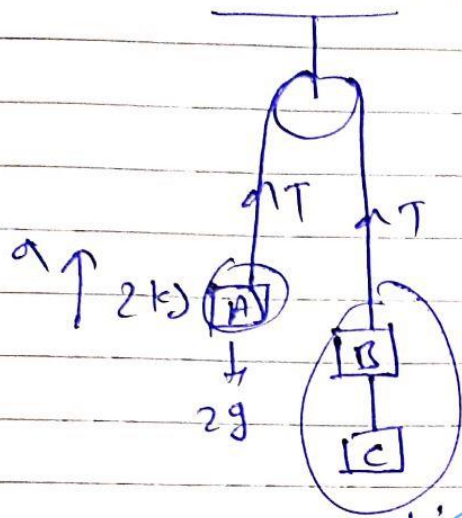 T
T
a
2 kg
A
2g
B
C